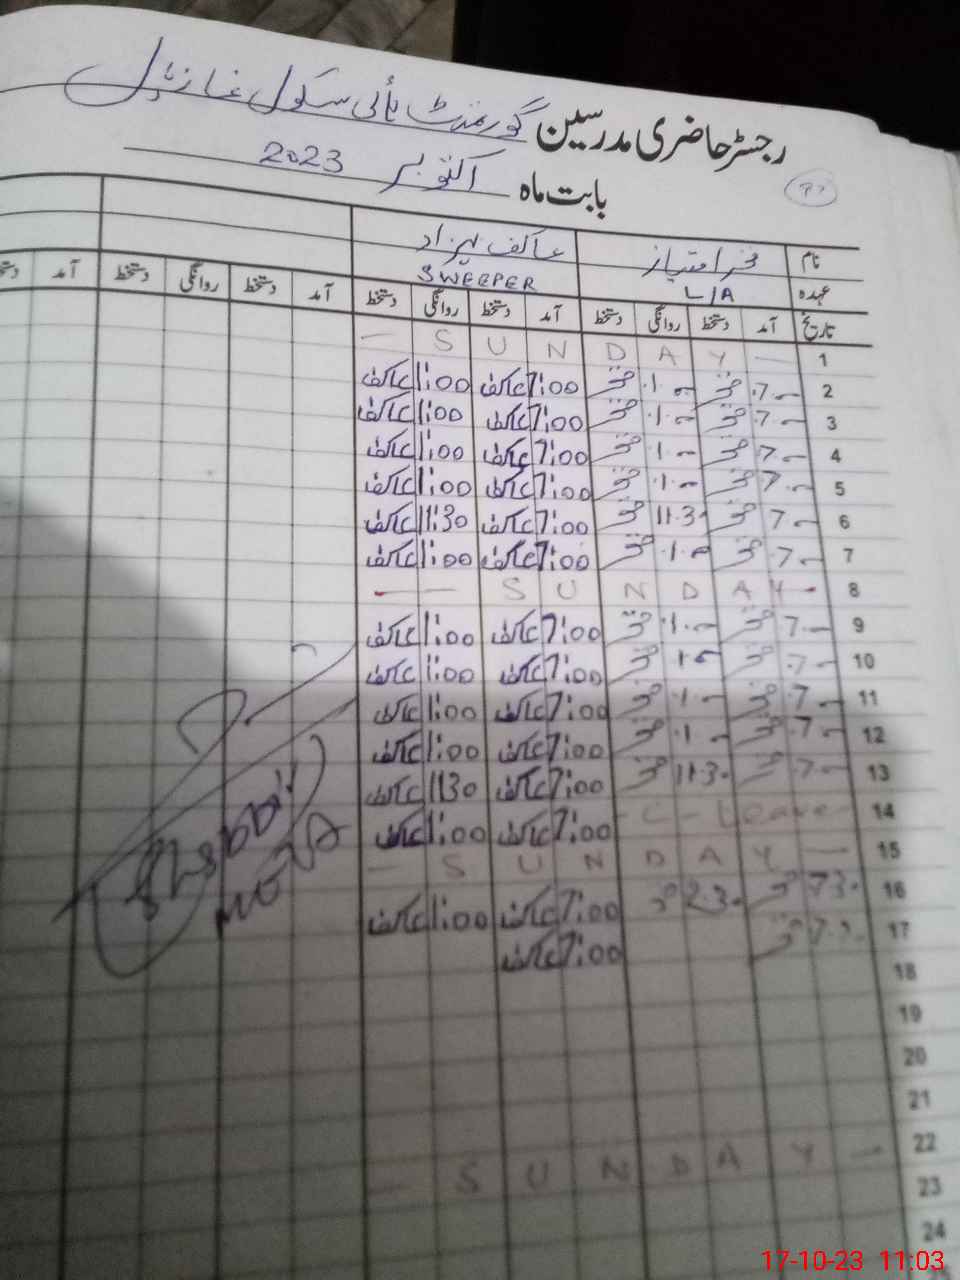 رجسٹر حاضری مدرسین گورنمنٹ ہائی سکول
بابت ماہ اکتوبر 2023
نام فخر امتیاز عاکف بہزاد
عہدہ L/A SWEEPER
تاریخ آمد دستخط روانگی دستخط آمد دستخط روانگی دستخط آمد دستخط روانگی دستخط آمد
1 — SUNDAY —
2 7.00 1.00 7:00 عاکف 1:00 عاکف
3 7.00 1.00 7:00 عاکف 1:00 عاکف
4 7.00 1.00 7:00 عاکف 1:00 عاکف
5 7.00 1.00 7:00 عاکف 1:00 عاکف
6 7.00 11.30 7:00 عاکف 11:30 عاکف
7 7.00 1.00 7:00 عاکف 1:00 عاکف
8 — — SUNDAY —
9 7.00 1.00 7:00 عاکف 1:00 عاکف
10 7.00 1.00 7:00 عاکف 1:00 عاکف
11 7.00 1.00 7:00 عاکف 1:00 عاکف
12 7.00 1.00 7:00 عاکف 1:00 عاکف
13 7.00 11.30 7:00 عاکف 1130 عاکف
14 C - Leave 7:00 عاکف 1:00 عاکف
15 — SUNDAY —
16 7.30 2.30 7:00 عاکف 1:00 عاکف
17 7:00 عاکف
18
19
20
21
22 — SUNDAY —
23
24
17-10-23 11:03